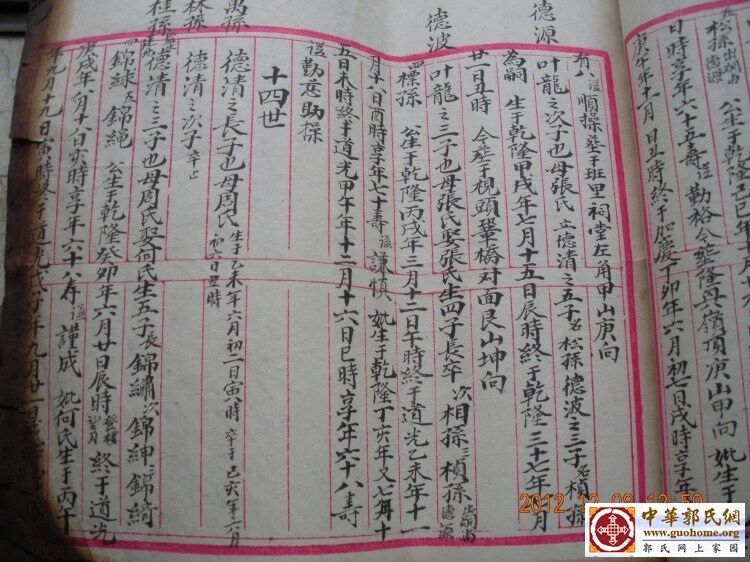 松孫
日時享年六十五壽謚勤裕今葬隆興嶺頂庚山甲向妣生于
庚午年十一月日丑時終于嘉慶丁卯年六月初七日戌時享年
有八謚順操葬于班里祠堂左角甲山庚向
德源
叶龍之次子也母張氏立德清之五子名松孫德波之三子名楨孫
為嗣生于乾隆甲戌年七月十五日辰時終于乾隆三十七年月
廿一日丑時今葬于梘頭華橋对面艮山坤向
德波
叶龍之三子也母張氏娶張氏生四子長卒次相孫三楨孫出嗣与德源
四標孫公生于乾隆丙戌年三月十二日午時終于道光乙未年十一
月十八日酉時享年七十壽謚謙慎妣生于乾隆丁亥年又七月十
五日未時終于道光甲午年十二月十六日巳時享年六十八壽
謚勤慈助操
十四世
萬孫
德清之長子也母周氏生于乙未年六月初二日寅時卒于己亥年六月初六日丑時
林孫
德清之次子卒止
桂孫
德清之三子也母周氏娶何氏生五子長錦繡次錦紳三錦綺
四錦綠五錦繩公生于乾隆癸卯年六月廿日辰時終于道光
庚戌年八月十八日亥時享年六十八寿謚謹成妣何氏生于丙午
年九月十九日寅時終于道光戊子年九月廿一日
2012.12.08 12:59
中華郭氏網
www.guohome.org
郭氏网上家园